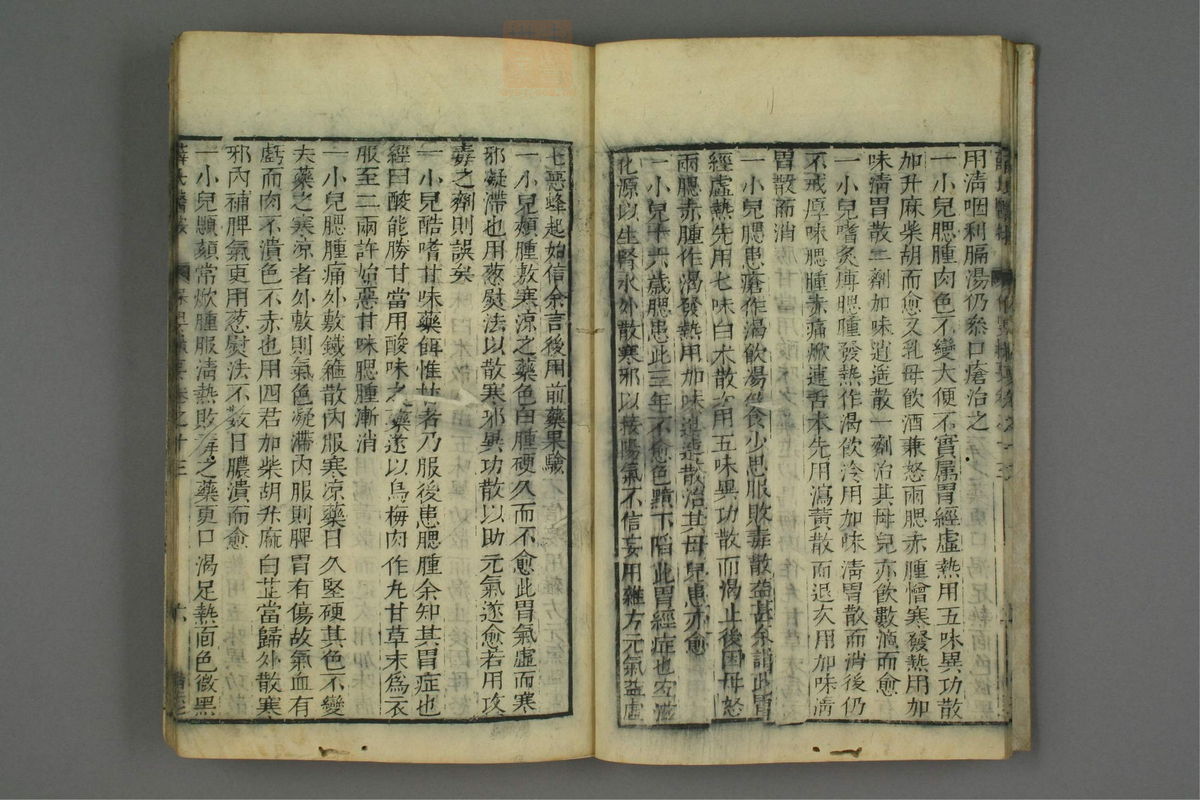 用清咽利膈湯仍叅口瘡治之
一小兒腮腫肉色不變大便不實属胃經虛熱用五味異功散
加升麻柴胡而愈又乳母飲酒兼怒兩腮赤腫憎寒發熱用加
味清胃散二劑加味逍遥散一劑治其母兒亦飲數滴而愈
一小兒嗜炙煿腮腫發熱作渴飲冷用加味清胃散而消後仍
不戒厚味腮腫赤痛焮連舌本先用瀉黃散而退次用加味清
胃散而消
一小兒腮患瘡作渴飲湯食少思服敗毒散益甚余謂此胃
經虛熱先用七味白术散次用五味異功散而渴止後因母怒
兩腮赤腫作渴發熱用加味逍遥散治其母兒患亦愈
一小兒十六歲腮患此三年不愈色黯下陷此胃經症也宜滋
化源以生腎水外散寒邪以接陽氣不信妄用雜方元氣益虛
七惡蜂起始信余言後用前藥果驗
一小兒頰腫敷寒涼之藥色白腫硬久而不愈此胃氣虛而寒
邪凝滯也用葱熨法以散寒邪異功散以助元氣遂愈若用攻
毒之劑則誤矣
一小兒酷嗜甘味藥餌惟甘者乃服後患腮腫余知其胃症也
經曰酸能勝甘當用酸味之藥遂以烏梅肉作丸甘草末爲衣
服至二兩許始惡甘味腮腫漸消
一小兒腮腫痛外敷鐵箍散內服寒凉藥日久堅硬其色不變
夫藥之寒凉者外敷則氣色凝滯內服則脾胃有傷故氣血有
虧而肉不潰色不赤也用四君加柴胡升麻白芷當歸外散寒
邪內補脾氣更用葱熨法不数日膿潰而愈
一小兒顋頦常焮腫服清熱敗毒之藥更口渴足熱面色微黑